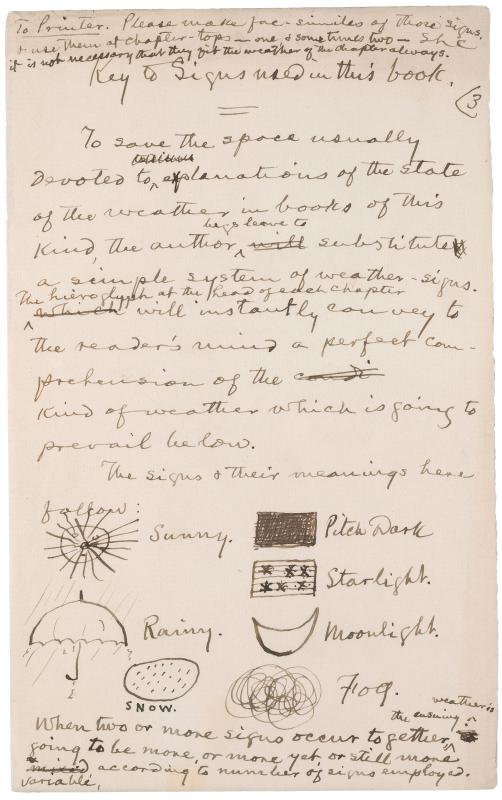 To Printer. Please make fac-similes of those signs,
& use them at chapter-tops — one & sometimes two — SLC
it is not necessary that they fit the weather of the chapter always.
Key to Signs used in this book.
3
To save the space usually
devoted to explanations of the state
of the weather in books of this
kind, the author begs leave to will substitute
a simple system of weather-signs.
The hieroglyph at the head of each chapter
which will instantly convey to
the reader's mind a perfect com-
prehension of the condi
kind of weather which is going to
prevail below.
The signs & their meanings here
follow:
Sunny. Pitch Dark
Starlight.
Rainy. Moonlight.
SNOW. Fog.
When two or more signs occur together, the ensuing weather is
going to be more, or more yet, or still more
mixed according to number of signs employed.
variable,